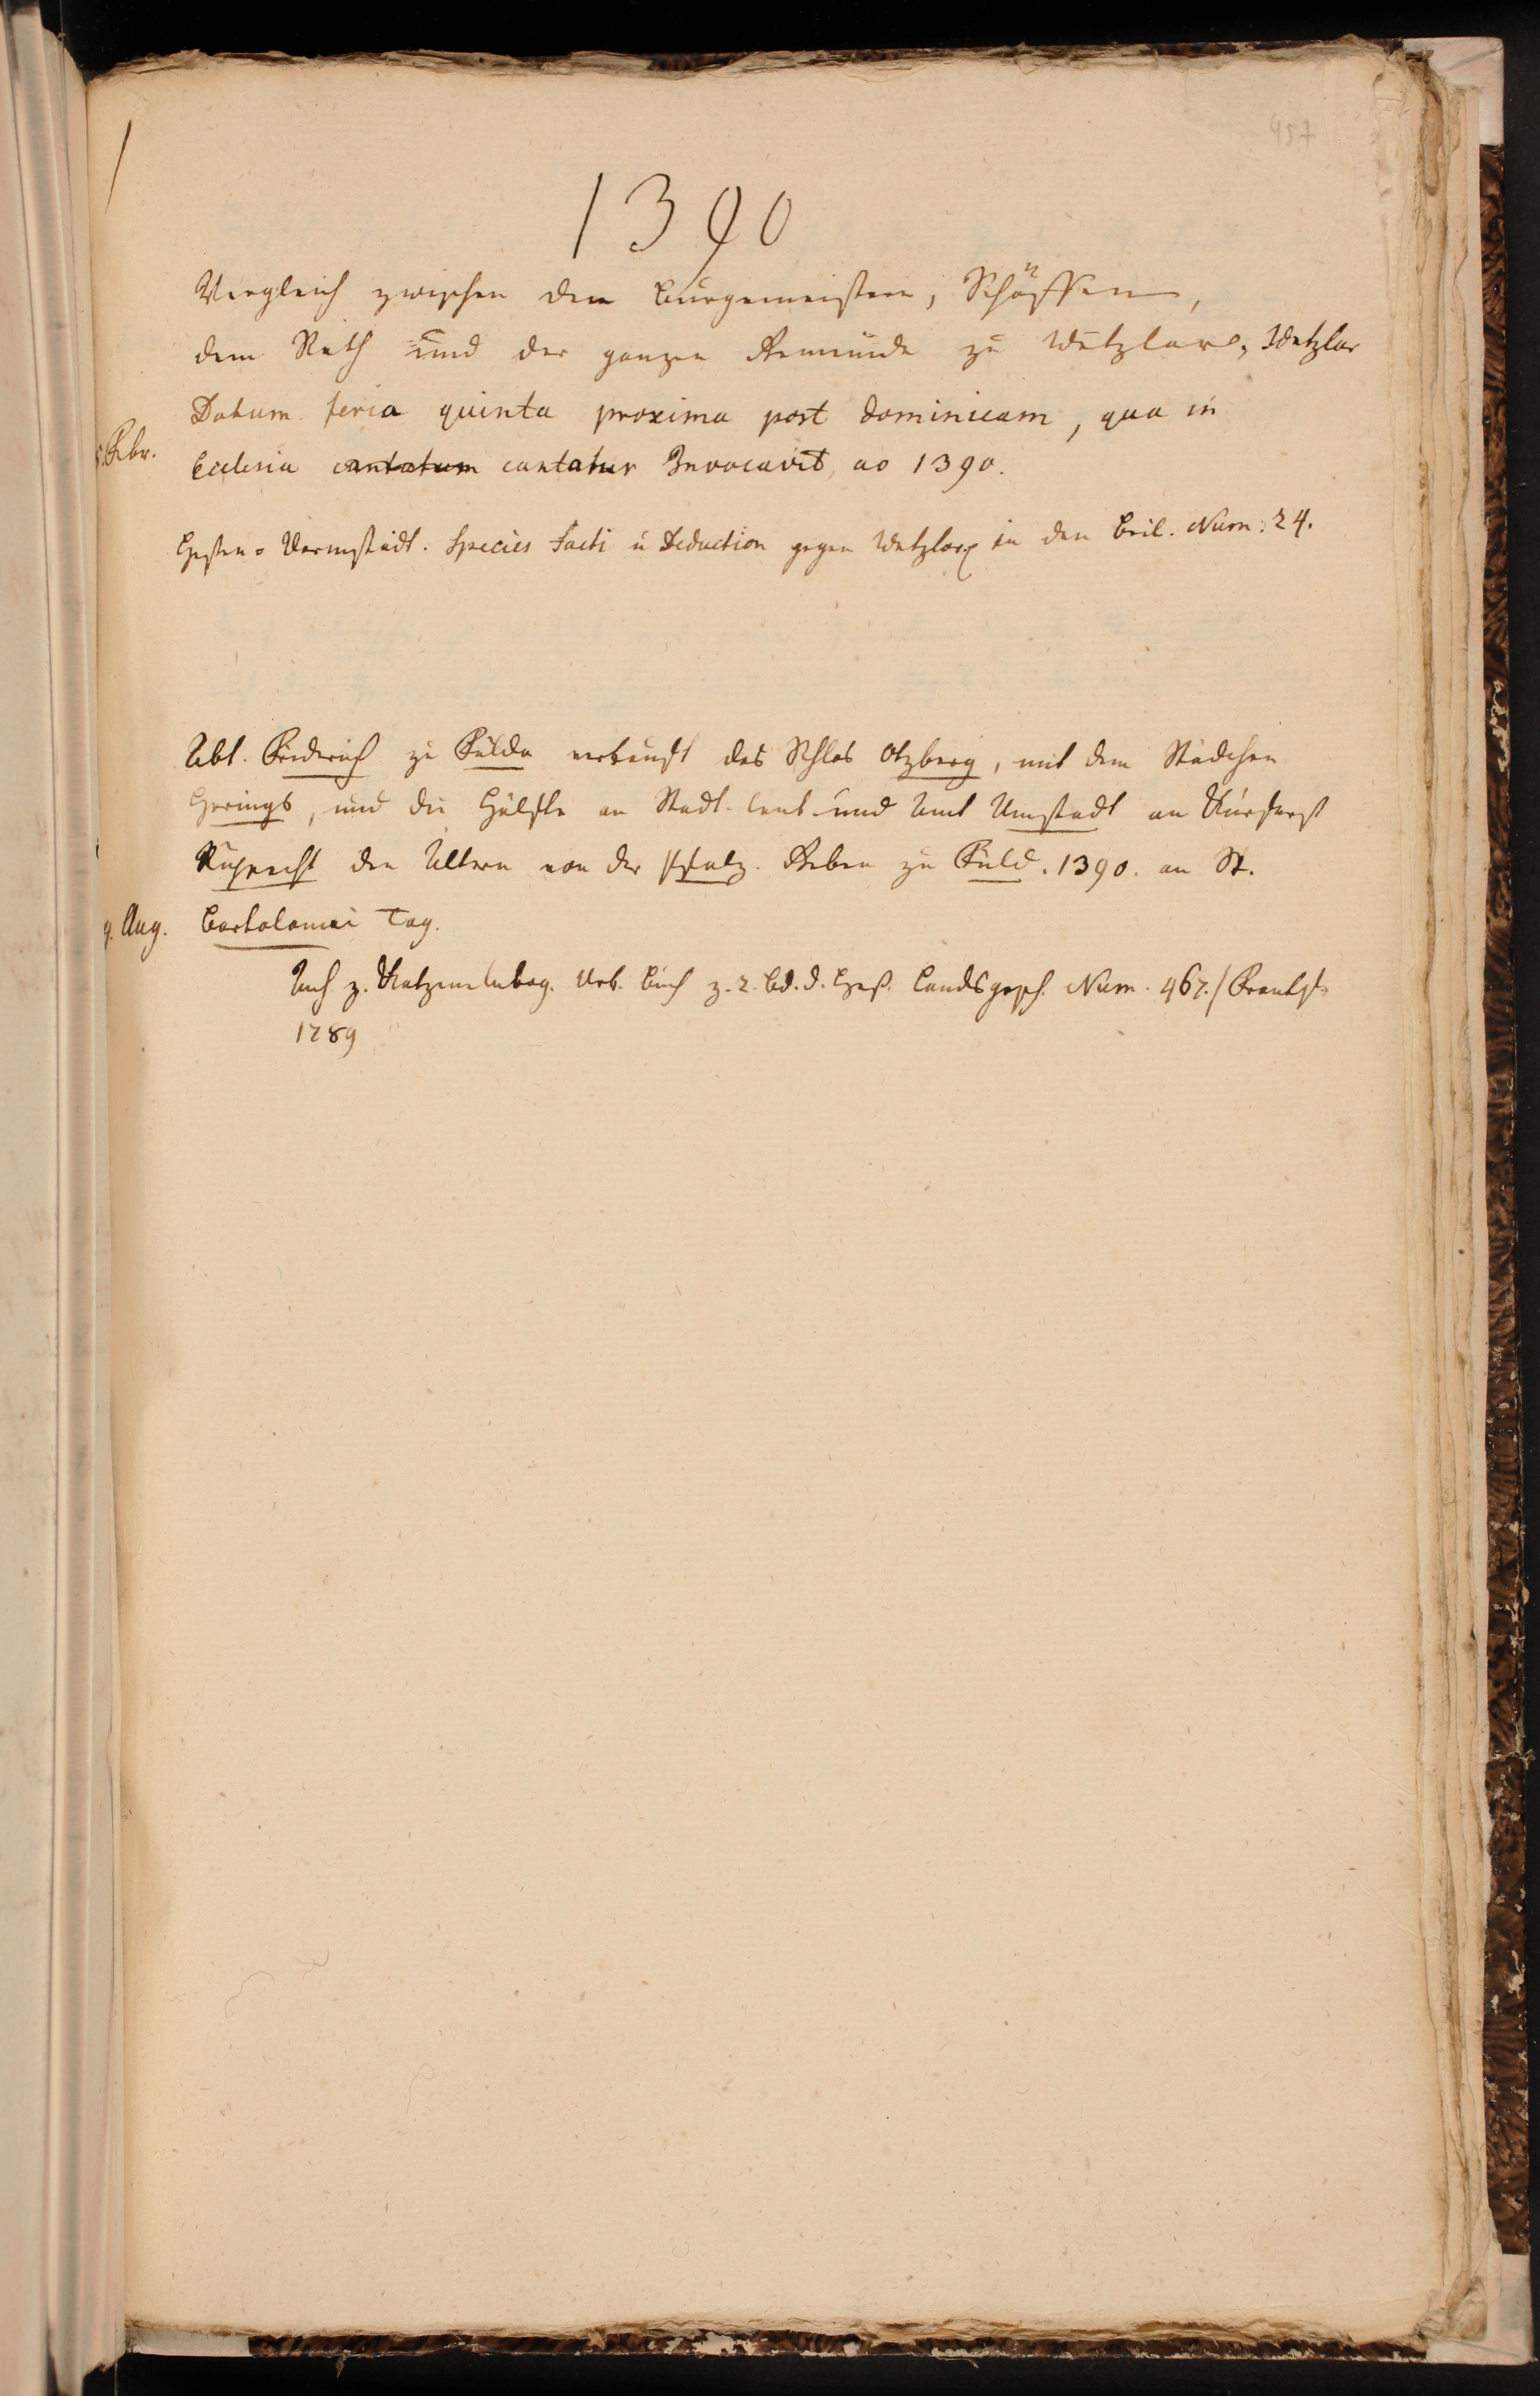 957
1390
Vergleich zwischen den Burgemeistern, Schöffen,
dem Rath und der ganzen Gemeinde zu Wetzlar, Wetzlar
Datum feria quinta proxima post dominicam, qua in
Febr.
Ecclesia cantatum cantatur Invocavit, ao 1390.
Hessen-Darmstädt. Species Facti u Deduction gegen Wetzlar in den Beil. Num. 24.
Abt. Friderich zu Fulda verkauft das Schlos Otzberg, mit dem Städchen
Herings, und die Hälfte an Stadt und Amt Umstadt an Kurfurst
Ruprecht den Ältern von der Pfalz. Geben zu Fuld. 1390. an St.
Aug.
Bartolomei Tag.
z. Katzenelnbog. Urk. Buch z. 2. Bd. d. Heß. Landsgesch. Num. 467./
1789